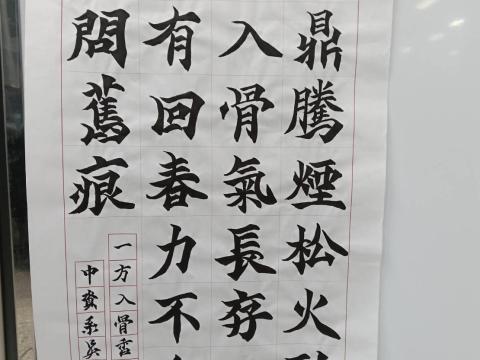 鼎騰煙松火
入骨氣長存
有回春力不
問舊痕
一方入骨
中
系吳